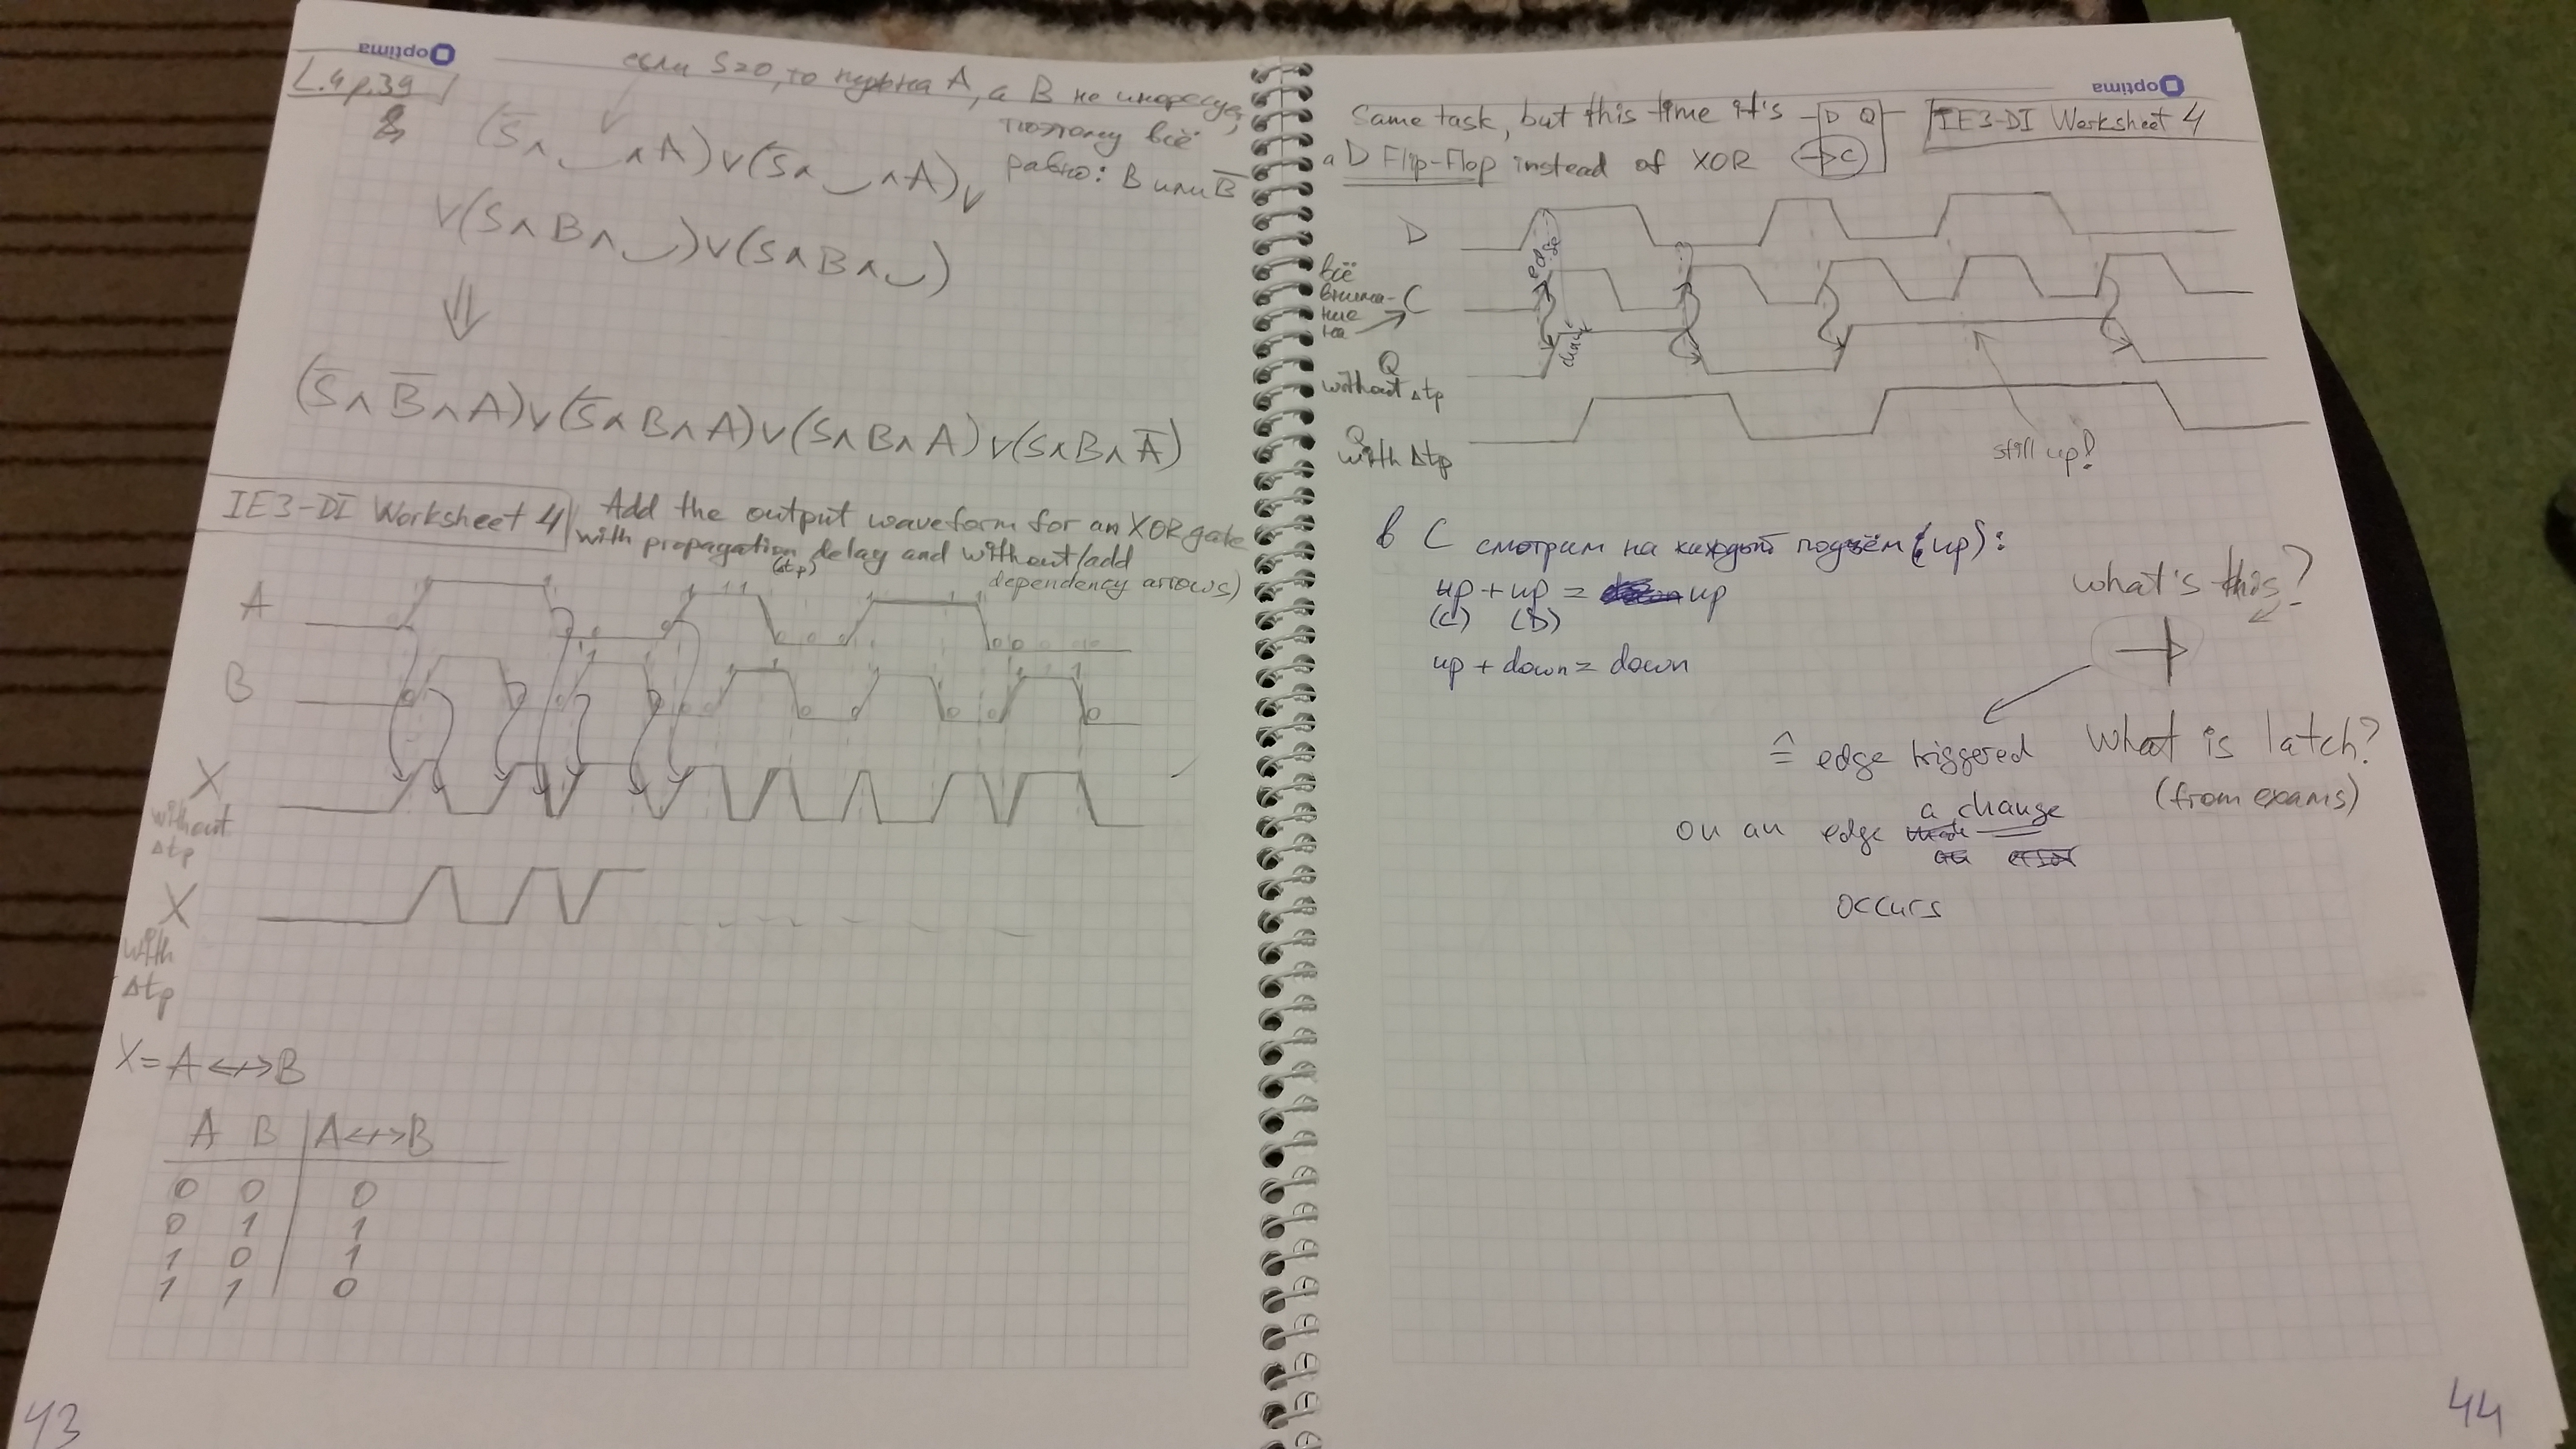 optima
L.4 p.39
если S=0, то нужна A, а B не
поэтому всё
равно: B или B̅
(S̅∧ ‿ ∧A)∨(S̅∧ ‿ ∧A)∨
∨(S∧B∧‿)∨(S∧B∧‿)
⇓
(S̅∧B̅∧A)∨(S̅∧B∧A)∨(S∧B∧A)∨(S∧B∧A̅)
IE3-DI Worksheet 4
Add the output waveform for an XOR gate
with propagation delay and without/add
(Δtp)
dependency arrows)
A
B
X
without
Δtp
X
with
Δtp
X=A<+>B
A B A<+>B
0 0 0
0 1 1
1 0 1
1 1 0
43
optima
Same task, but this time it's
D Q
C
IE3-DI Worksheet 4
a D Flip-Flop instead of XOR
D
edge
всё
внима-
ние
на
C
Q
without Δtp
Q
with Δtp
still up!
в C смотрим на каждый подъём (up):
up + up = up
(C) (D)
up + down = down
what's this?
≙ edge triggered
What is latch?
(from exams)
a change
on an edge
occurs
44